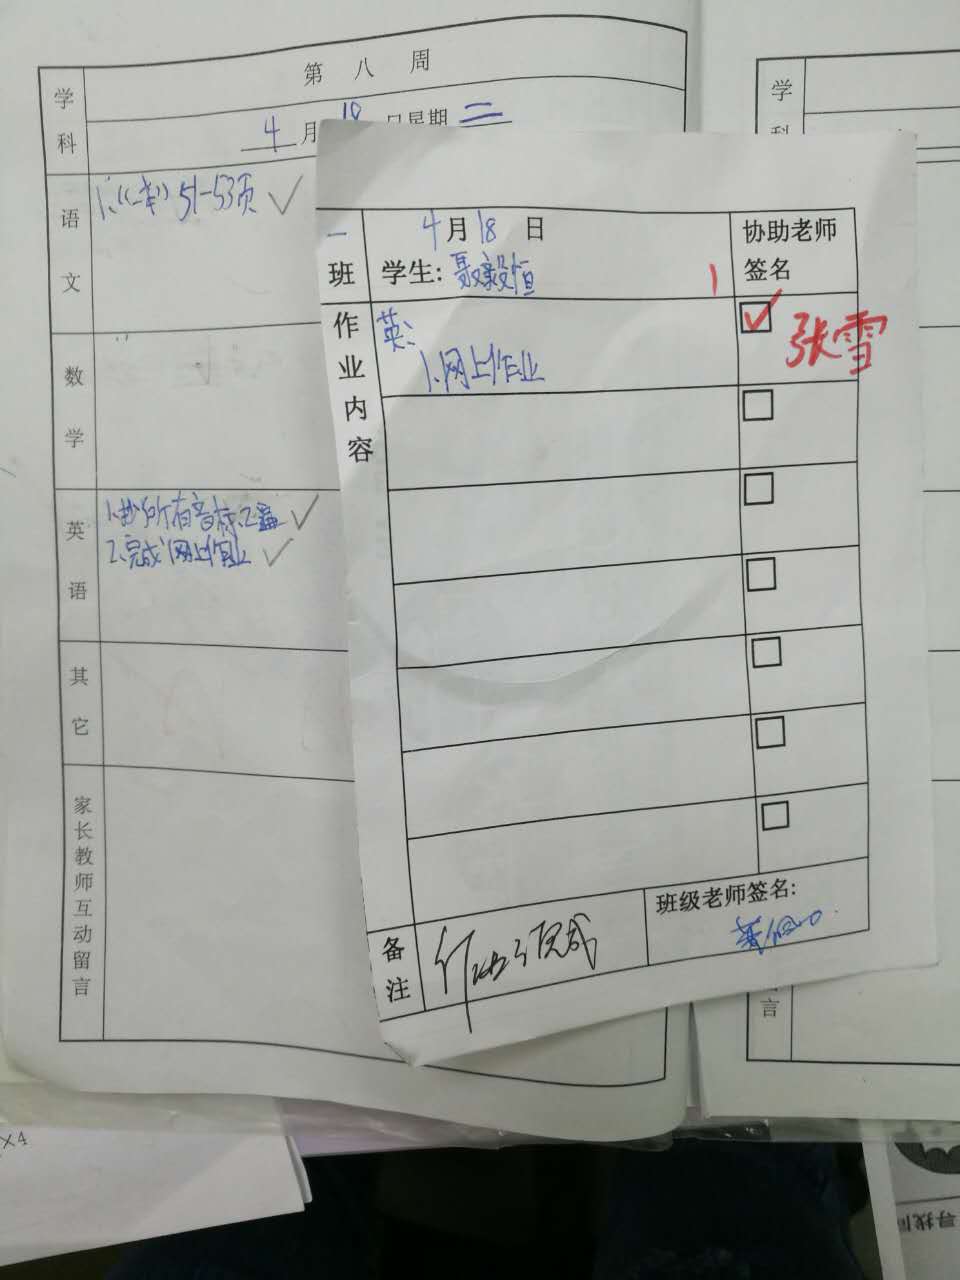 第 八 周
学科
4月18日星期二
语文
1、《一本》51-53页
数学
英语
1、抄所有音标2遍
2、完成网上作业
其它
家长教师互动留言
一班
4月18日
学生:聂毅恒
协助老师签名
1
作业内容
英:
1、网上作业
张雪
备注
班级老师签名:
学
科
言
×4
寻找